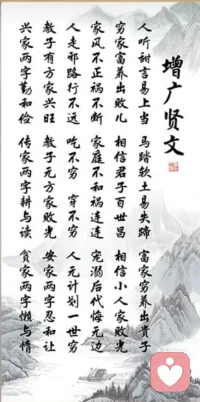 增广贤文
人听甜言易上当 马踏软土易失蹄 富家穷养出贵子
穷家富养出败儿 相信君子百世昌 相信小人家败光
家风不正祸不断 家庭不和祸连连 宠溺后代悔无边
人走邪路行不远 吃不穷 穿不穷 人无计划一世穷
教子有方家兴旺 教子无方家败光 安家两字忍和让
兴家两字勤和俭 传家两字耕与读 贫家两字懒与惰